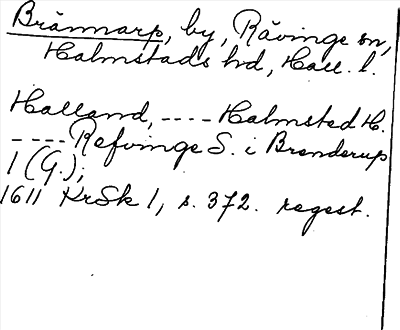 Brännarp, by, Rävinge sn,
Halmstads hd, Hall. l.
Halland, ---- Halmsted H.
---- Refvinge S. i Brenderup
1 (G.);
1611 KrSk 1, s. 372. regest.